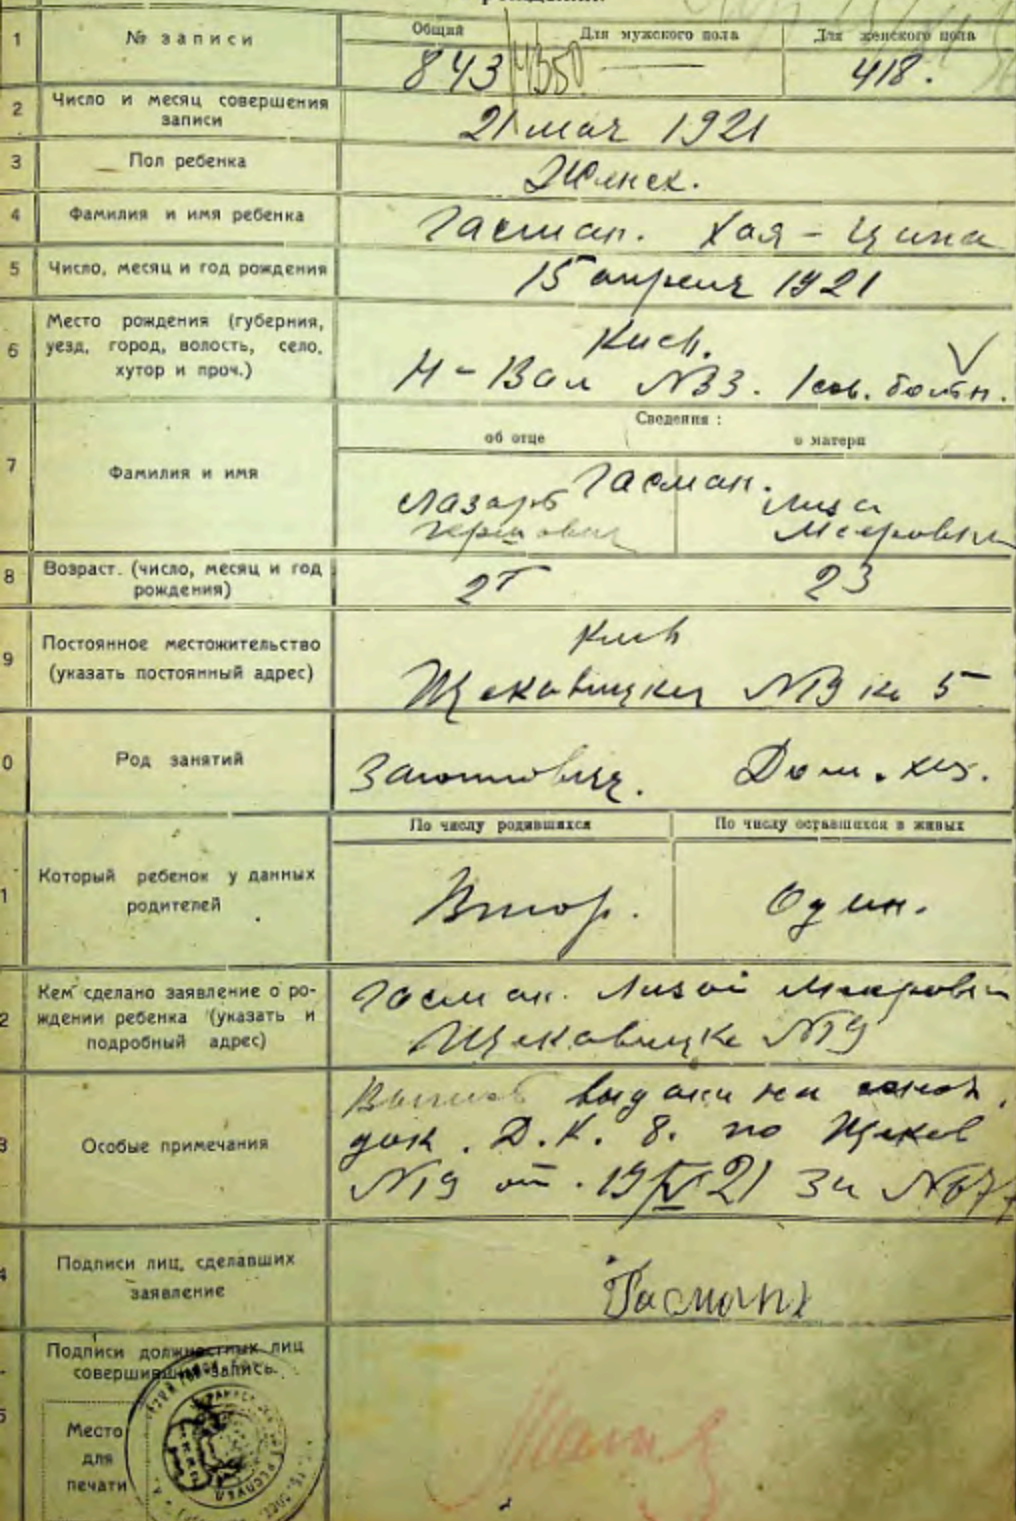 1 № записи
Общий Для мужского пола Для женского пола
843 4350 — 418.
2 Число и месяц совершения
записи
21 мая 1921
3 Пол ребенка
Женск.
4 Фамилия и имя ребенка
Гасман. Хая - Ципа
5 Число, месяц и год рождения
15 апреля 1921
6 Место рождения (губерния,
уезд, город, волость, село,
хутор и проч.)
Киев.
Н-Вал №33. 1 сов. больн.
7 Фамилия и имя
Сведения:
об отце о матери
Гасман.
Лазарь Лиза
Гершович Мееровн
8 Возраст. (число, месяц и год
рождения)
23
9 Постоянное местожительство
(указать постоянный адрес)
Киев
Щекавицкая №19 кв 5
0 Род занятий
Дом. хоз.
1 Который ребенок у данных
родителей
По числу родившихся По числу оставшихся в живых
Втор. Один.
2 Кем сделано заявление о ро-
ждении ребенка (указать и
подробный адрес)
Гасман. Лизой Мееровн
Щекавицк №19
3 Особые примечания
выдана на основ.
док. Д.К. 8. по Щекав
№19 от 19/V 21 за №677
4 Подписи лиц, сделавших
заявление
Гасман
5 Подписи должностных лиц
совершивших запись.
Место
для
печати